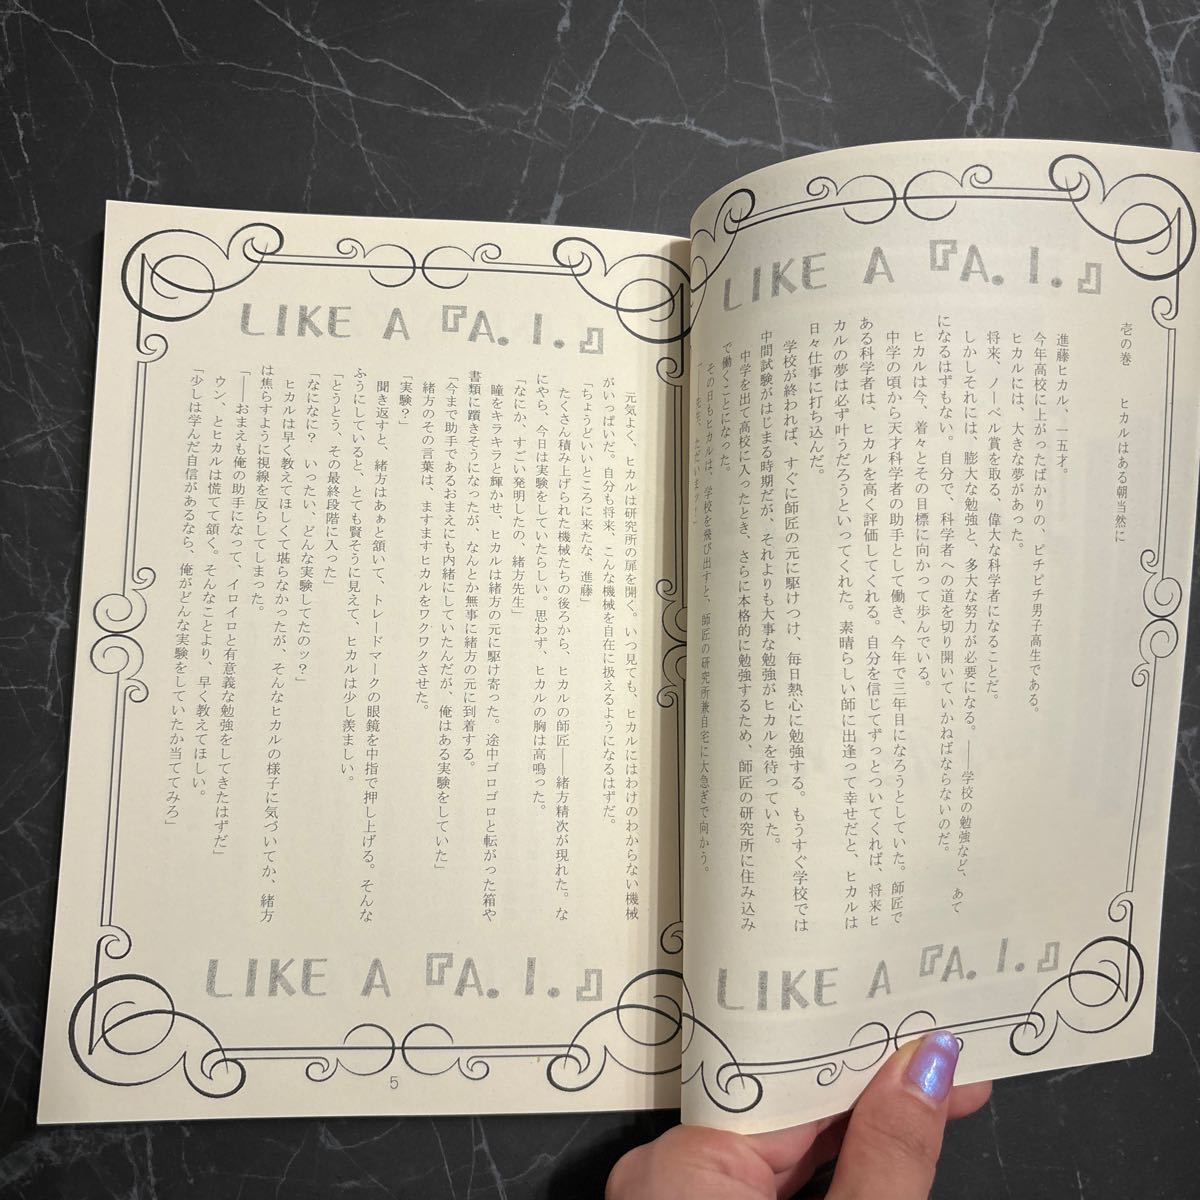 LIKE A 『A.I.』
壱の巻　ヒカルはある朝当然に
進藤ヒカル、一五才。
今年高校に上がったばかりの、ピチピチ男子高生である。
ヒカルには、大きな夢があった。
将来、ノーベル賞を取る、偉大な科学者になることだ。
しかしそれには、膨大な勉強と、多大な努力が必要になる。――学校の勉強など、あて
になるはずもない。自分で、科学者への道を切り開いていかねばならないのだ。
ヒカルは今、着々とその目標に向かって歩んでいる。
中学の頃から天才科学者の助手として働き、今年で三年目になろうとしていた。師匠で
ある科学者は、ヒカルを高く評価してくれる。自分を信じてずっとついてくれば、将来ヒ
カルの夢は必ず叶うだろうといってくれた。素晴らしい師に出逢って幸せだと、ヒカルは
日々仕事に打ち込んだ。
学校が終われば、すぐに師匠の元に駆けつけ、毎日熱心に勉強する。もうすぐ学校では
中間試験がはじまる時期だが、それよりも大事な勉強がヒカルを待っていた。
中学を出て高校に入ったとき、さらに本格的に勉強するため、師匠の研究所に住み込み
で働くことになった。
その日もヒカルは、学校を飛び出すと、師匠の研究所兼自宅に大急ぎで向かう。
LIKE A 『A.I.』
LIKE A 『A.I.』
元気よく、ヒカルは研究所の扉を開く。いつ見ても、ヒカルにはわけのわからない機械
がいっぱいだ。自分も将来、こんな機械を自在に扱えるようになるはずだ。
「ちょうどいいところに来たな、進藤」
たくさん積み上げられた機械たちの後ろから、ヒカルの師匠――緒方精次が現れた。な
にやら、今日は実験をしていたらしい。思わず、ヒカルの胸は高鳴った。
「なにか、すごい発明したの、緒方先生」
瞳をキラキラと輝かせ、ヒカルは緒方の元に駆け寄った。途中ゴロゴロと転がった箱や
書類に躓きそうになったが、なんとか無事に緒方の元に到着する。
「今まで助手であるおまえにも内緒にしていたんだが、俺はある実験をしていた」
緒方のその言葉は、ますますヒカルをワクワクさせた。
「実験？」
聞き返すと、緒方はあぁと頷いて、トレードマークの眼鏡を中指で押し上げる。そんな
ふうにしていると、とても賢そうに見えて、ヒカルは少し羨ましい。
「とうとう、その最終段階に入った」
「なになに？　いったい、どんな実験してたのッ？」
ヒカルは早く教えてほしくて堪らなかったが、そんなヒカルの様子に気づいてか、緒方
は焦らすように視線を反らしてしまった。
「――おまえも俺の助手になって、イロイロと有意義な勉強をしてきたはずだ」
ウン、とヒカルは慌てて頷く。そんなことより、早く教えてほしい。
「少しは学んだ自信があるなら、俺がどんな実験をしていたか当ててみろ」
LIKE A 『A.I.』
5